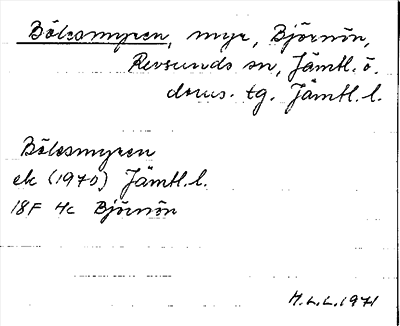 Bölesmyren, myr, Björnön,
Revsunds sn, Jämtl. ö.
doms. tg. Jämtl. l.
Bölesmyren
ek (1970) Jämtl. l.
18F 4c Björnön
M.L.L. 1971